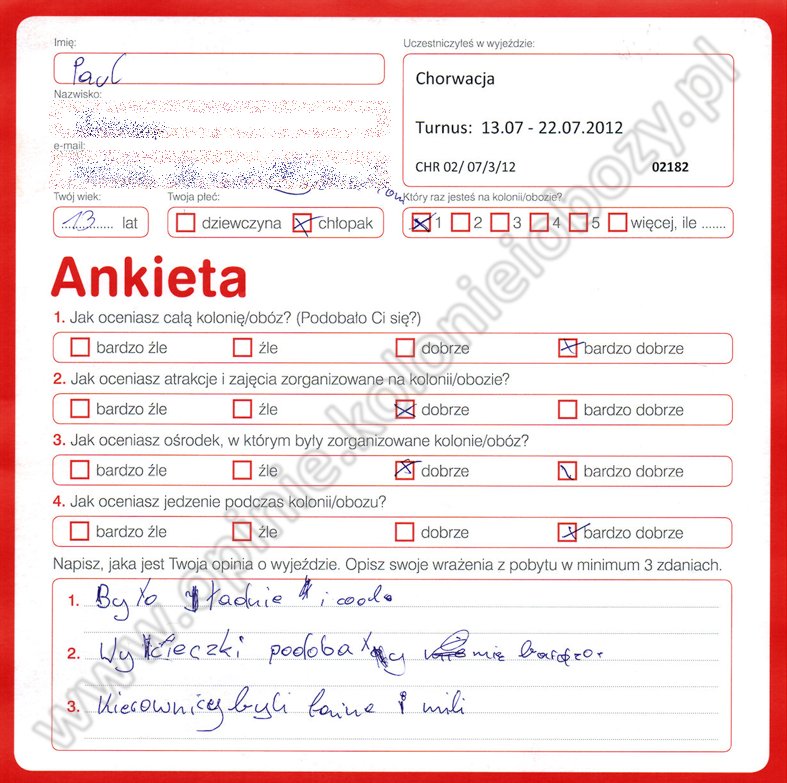 Imię:
Paul
Nazwisko:
e-mail:
Uczestniczyłeś w wyjeździe:
Chorwacja
Turnus: 13.07 - 22.07.2012
CHR 02/ 07/3/12 02182
Twój wiek:
13 lat
Twoja płeć:
dziewczyna chłopak
Który raz jesteś na kolonii/obozie?
1 2 3 4 5 więcej, ile .......
Ankieta
1. Jak oceniasz całą kolonię/obóz? (Podobało Ci się?)
bardzo źle źle dobrze bardzo dobrze
2. Jak oceniasz atrakcje i zajęcia zorganizowane na kolonii/obozie?
bardzo źle źle dobrze bardzo dobrze
3. Jak oceniasz ośrodek, w którym były zorganizowane kolonie/obóz?
bardzo źle źle dobrze bardzo dobrze
4. Jak oceniasz jedzenie podczas kolonii/obozu?
bardzo źle źle dobrze bardzo dobrze
Napisz, jaka jest Twoja opinia o wyjeździe. Opisz swoje wrażenia z pobytu w minimum 3 zdaniach.
1. Było ładnie i coolo
2. Wycieczki podobały mię bardzo.
3. Kierownicy byli fajne i mili
www.opinie.kolonieiobozy.pl